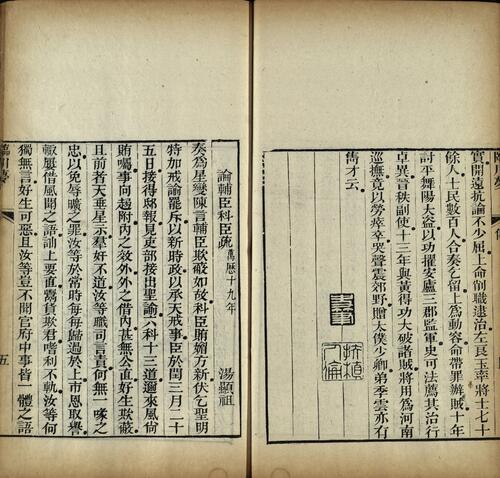 實開遠抗論不少屈上命削職逮治左良玉率將士七十
餘人士民數百人合奏乞留上爲動容命帶罪辦賊十年
討平舞陽大盜以功擢安廬三郡監軍史可法薦其治行
卓異晉秩副使十三年與黃得功大破諸賊將用爲河南
巡撫竟以勞瘁卒哭聲震郊野贈太僕少卿弟季雲亦有
雋才云
論輔臣科臣疏 萬曆十九年
湯顯祖
奏爲星變陳言輔臣欺蔽如故科臣賄媚方新伏乞聖明
特加戒諭罷斥以新時政以承天戒事臣於閏三月二十
五日接得邸報見吏部接出聖諭六科十三道邇來風尚
賄囑事向趨附內之效外外之借內甚無公直好生欺蔽
且前者天垂星示羣好不道汝等職司言責何無一喙之
忠以免辱曠之罪汝等於常時每每歸過於上市恩取譽
輒屢借風聞之語訕上要直鬻貨欺君嗜利不軌汝等何
獨無言好生可惡且汝等豈不聞宮府中事皆一體之語
五